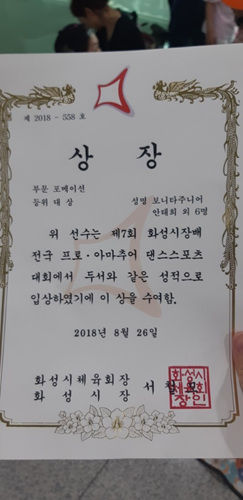 제 2018 - 558 호
상 장
부문 포메이션
등위 대상
성명 보니타주니어
안태희 외 6명
위 선수는 제7회 화성시장배
전국 프로·아마추어 댄스스포츠
대회에서 두서와 같은 성적으로
입상하였기에 이 상을 수여함.
2018년 8월 26일
화성시체육회장
화 성 시 장
서 철 모
화성시
체육회
장인